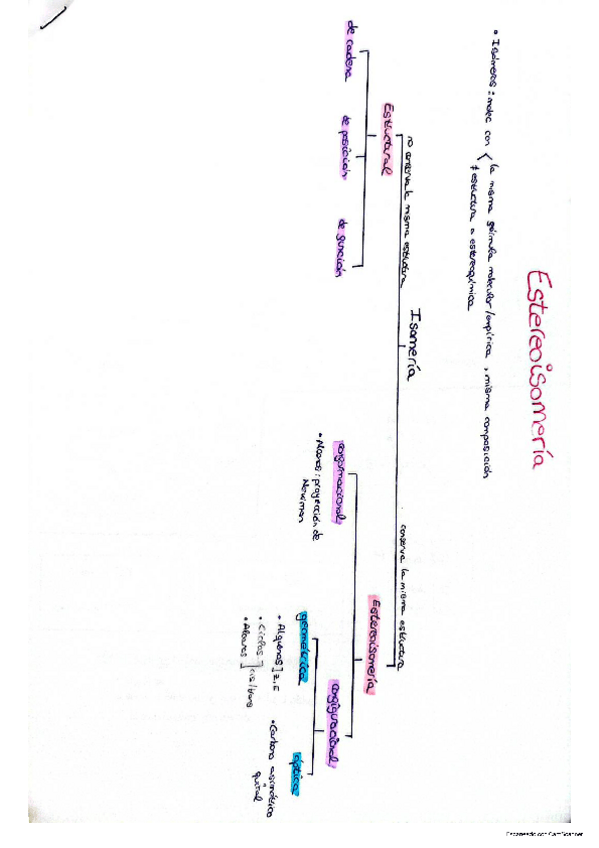 Estereoisomería
• Isómeros: molec con la misma fórmula molecular/empírica, misma composición
≠ estructura o estereoquímica
Isomería
no conserva la misma estructura
conserva la misma estructura
Estructural
Estereoisomería
de cadena
de posición
de función
conformacional
configuracional
• Alcanos: proyección de
Newman
geométrica
óptica
• Alquenos] Z, E
• Ciclos
• Alcanos ] cis/trans
• Carbono asimétrico
quiral
Escaneado con CamScanner